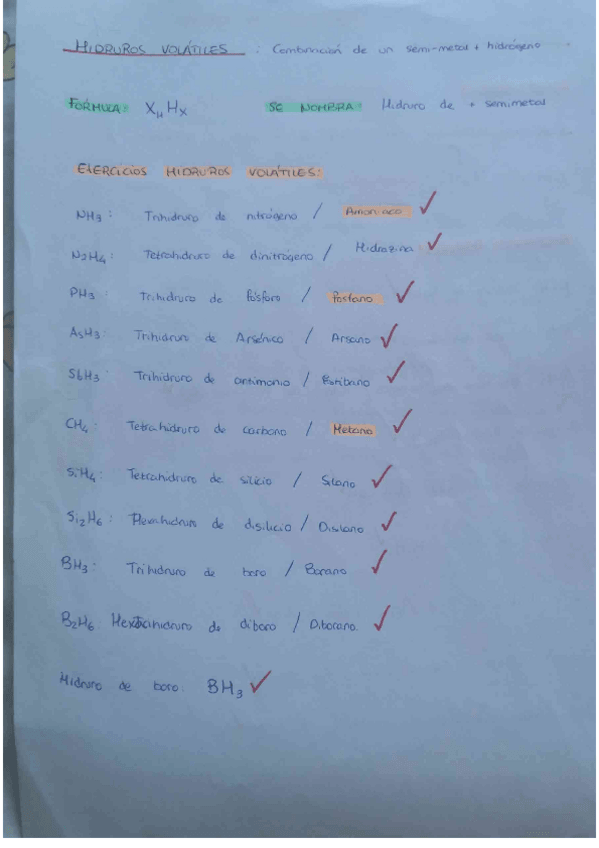 HIDRUROS VOLÁTILES : Combinación de un semi-metal + hidrógeno
FÓRMULA: XₙHₓ SE NOMBRA: Hidruro de + semimetal
EJERCICIOS HIDRUROS VOLÁTILES:
NH₃: Trihidruro de nitrógeno / Amoniaco ✓
N₂H₄: Tetrahidruro de dinitrógeno / Hidrazina ✓
PH₃: Trihidruro de fósforo / Fosfano ✓
AsH₃: Trihidruro de Arsénico / Arsano ✓
SbH₃: Trihidruro de antimonio / Estibano ✓
CH₄: Tetrahidruro de carbono / Metano ✓
SiH₄: Tetrahidruro de silicio / Silano ✓
Si₂H₆: Hexahidruro de disilicio / Disilano ✓
BH₃: Trihidruro de boro / Borano ✓
B₂H₆ de diboro / Diborano ✓
Hidruro de boro: BH₃ ✓